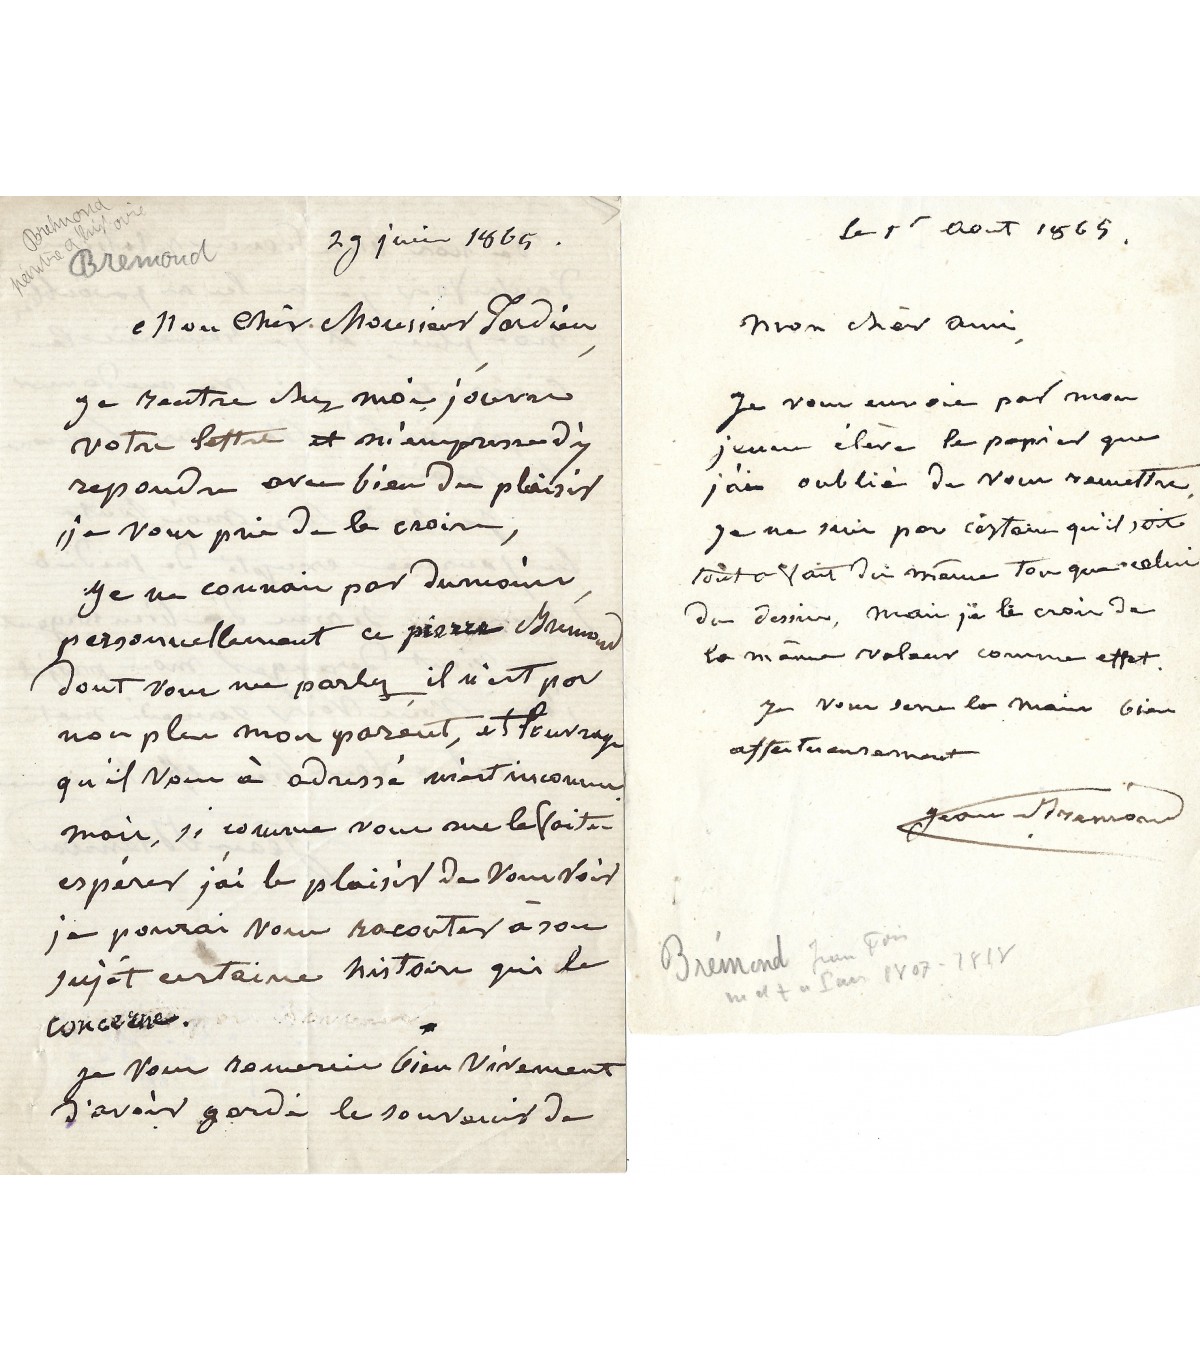 Brémond
peintre d'histoire
Brémond
29 juin 1865.
Mon Cher Monsieur Tardieu,
Je rentre chez moi, j'ouvre
votre lettre et m'empresse d'y
repondre avec bien du plaisir
je vous prie de le croire,
Je ne connais pas du moins,
personnellement ce pierre Brémond
dont vous me parlez il n'est pas
non plus mon parent, et l'ouvrage
qu'il vous à adressé m'est inconnu.
mais, si comme vous me le faites
espérer j'ai le plaisir de vous voir
je pourai vous raconter à son
sujèt certaine histoire qui le
concerne.
je vous remercie bien vivement
d'avoir gardé le souvenir de
le 1r Aout 1865.
Mon cher ami,
Je vous envoie par mon
jeune élève le papier que
j'ai oublié de vous remettre,
je ne suis pas certain qu'il soit
tout a fait du même ton que celui
du dessin, mais je le crois de
la même valeur comme effet.
Je vous serre la main bien
affectueusement
Jean Brémond
Brémond Jean Fois
né et + a Paris 1807-1868